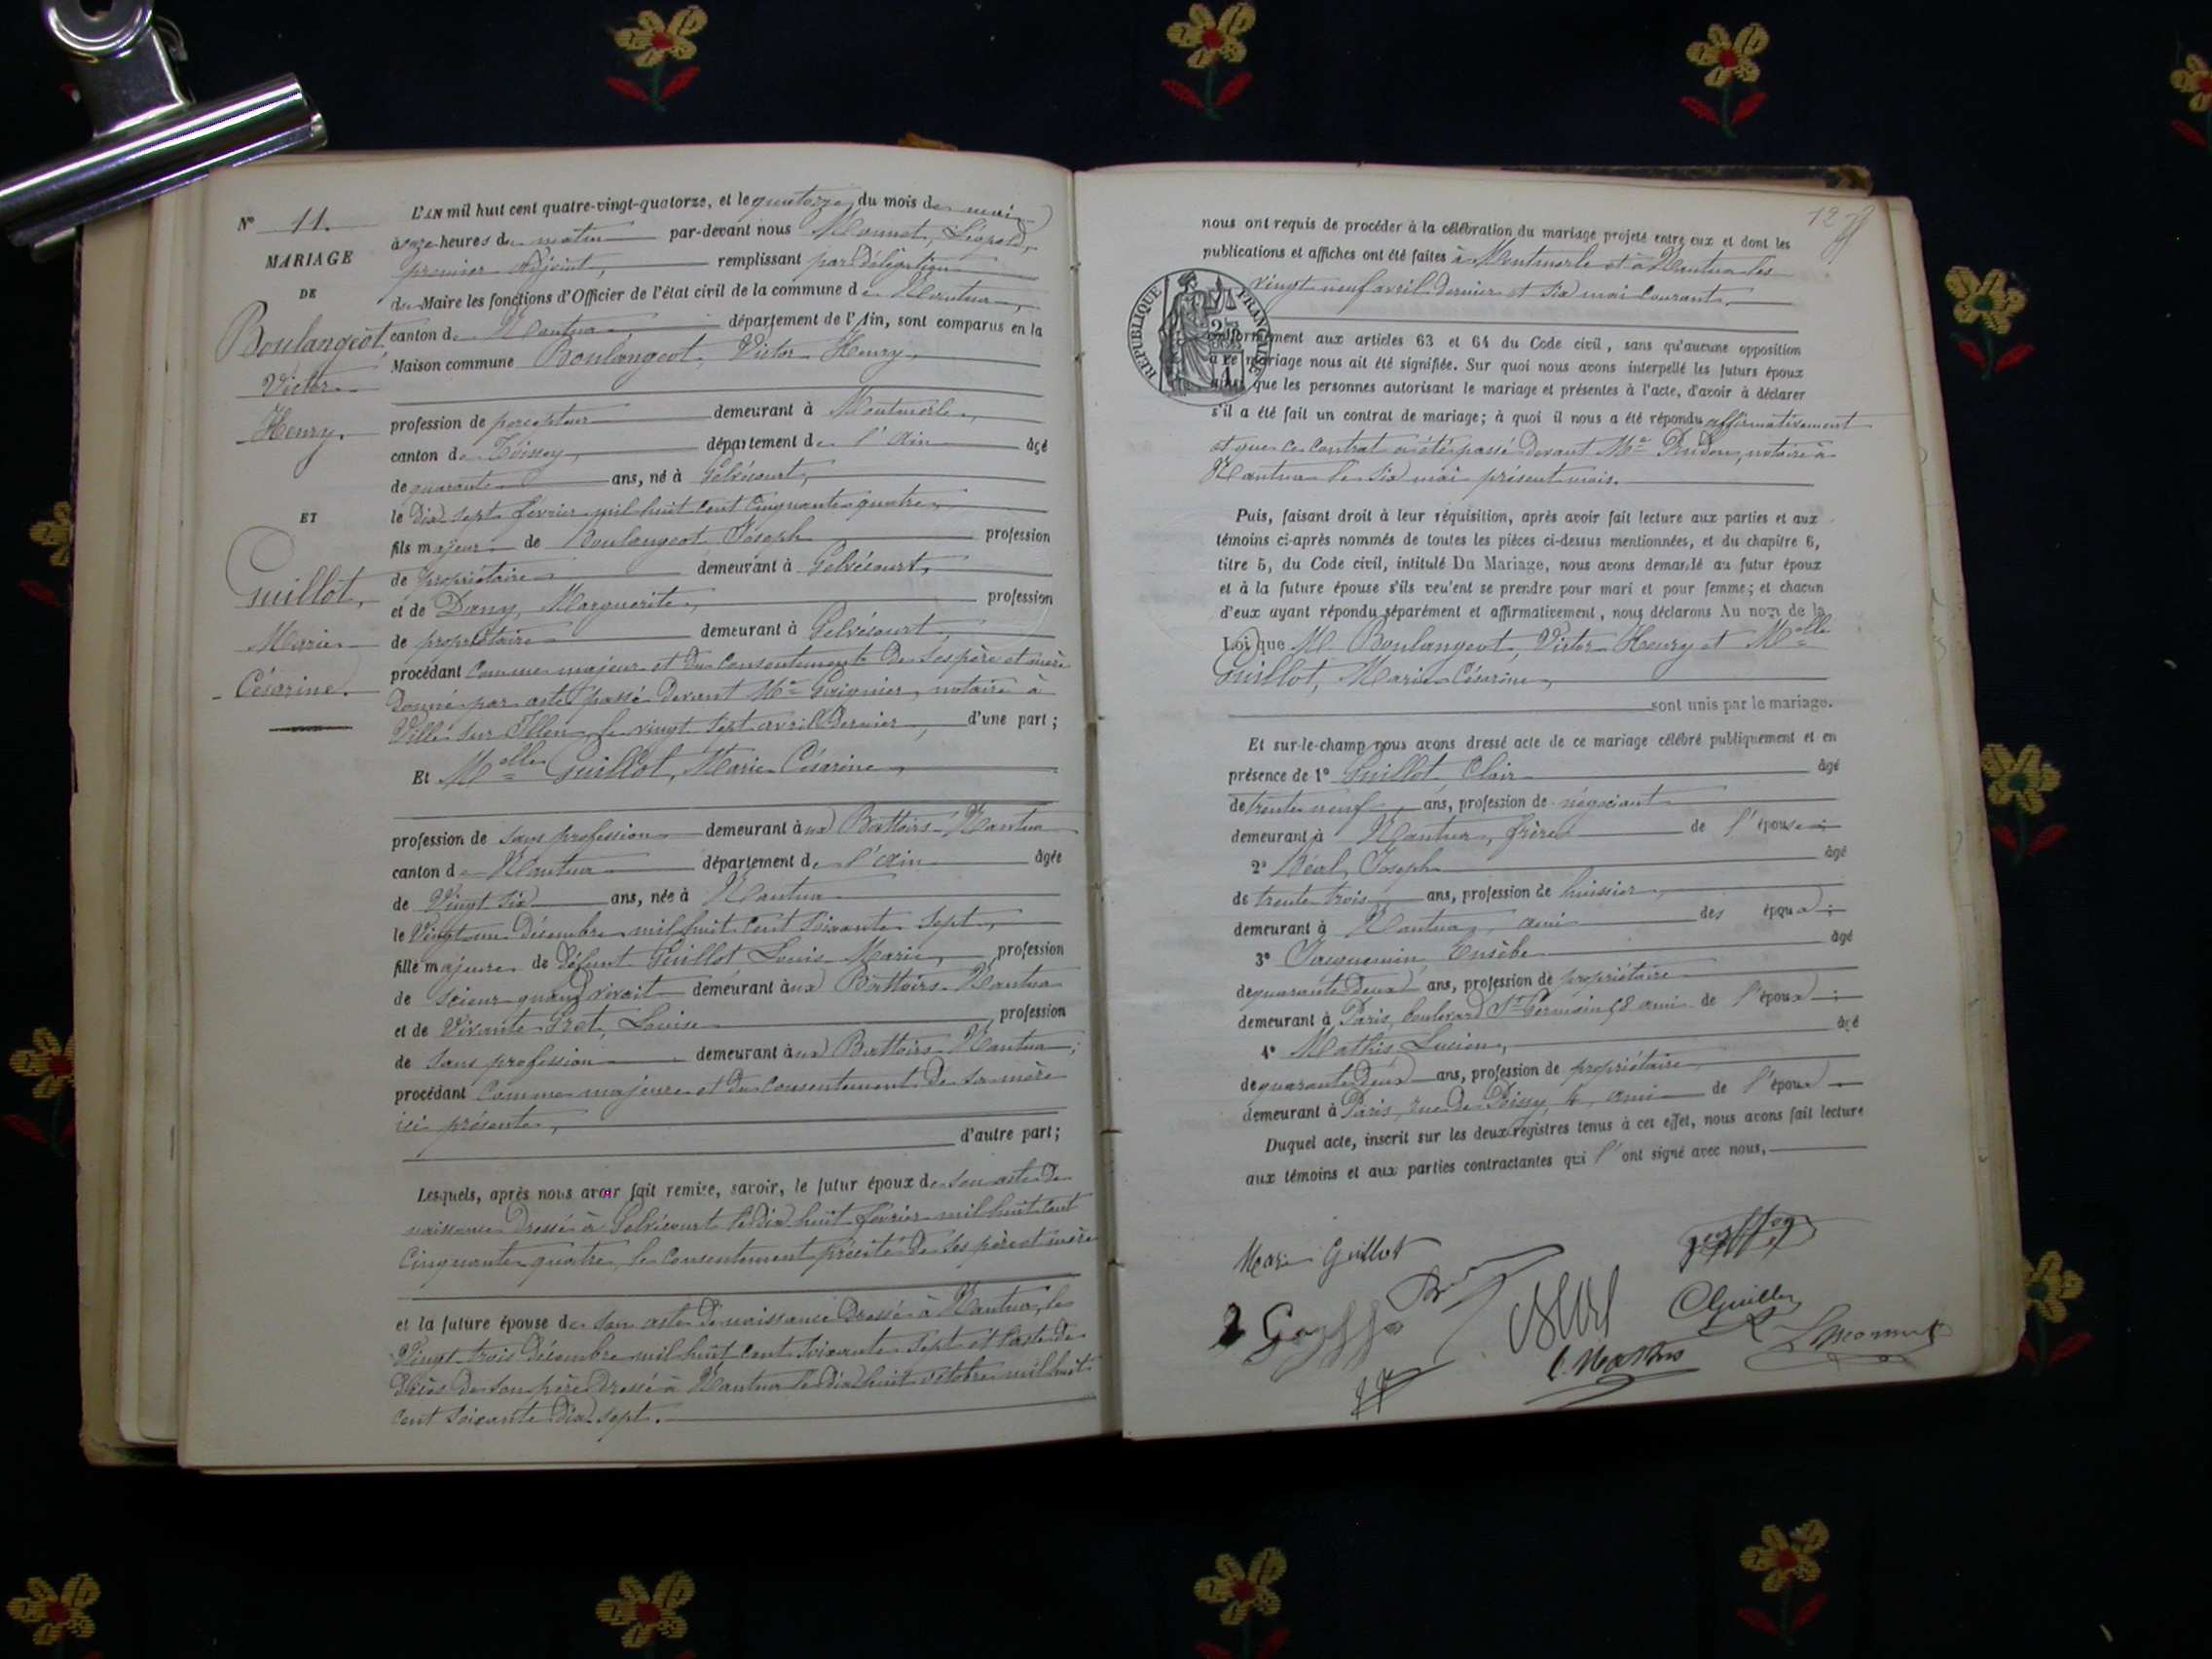 N° 11.
MARIAGE
DE
Boulangeot
Victor
Henry.
ET
Guillot,
Marie
Césarine.
L'AN mil huit cent quatre-vingt-quatorze, et le quatorze du mois de mai
à onze heures du matin par-devant nous Mounet, Léopold,
premier adjoint, remplissant par délégation
du Maire les fonctions d'Officier de l'état civil de la commune de Nantua,
canton de Nantua, département de l'Ain, sont comparus en la
Maison commune Boulangeot, Victor Henry,
profession de percepteur demeurant à Montmerle,
canton de Thoissey, département de l'Ain âgé
de quarante ans, né à Gelvécourt,
le dix sept février mil huit cent cinquante quatre,
fils majeur de Boulangeot Joseph profession
de propriétaire demeurant à Gelvécourt,
et de Dany, Marguerite, profession
de propriétaire demeurant à Gelvécourt,
procédant comme majeur et du consentement de ses père et mère
donné par acte passé devant Me notaire à
Ville sur Illon, le vingt sept avril dernier, d'une part;
Et Melle Guillot, Marie Césarine,
profession de sans profession demeurant aux Battoirs-Nantua
canton de Nantua département de l'Ain âgée
de vingt six ans, née à Nantua
le vingt un décembre mil huit cent soixante sept,
fille majeure de défunt Guillot Louis Marie, profession
de scieur quand vivait demeurant aux Battoirs-Nantua
et de vivante Louise profession
de sans profession demeurant aux Battoirs-Nantua;
procédant comme majeure et du consentement de sa mère
ici présente, d'autre part;
Lesquels, après nous avoir fait remise, savoir, le futur époux de son acte de
naissance dressé à Gelvécourt le dix huit février mil huit cent
cinquante quatre, le consentement précité de ses père et mère
et la future épouse de son acte de naissance dressé à Nantua, le
vingt trois décembre mil huit cent soixante sept et l'acte de
décès de son père dressé à Nantua le dix huit octobre mil huit
cent soixante dix sept.
12
nous ont requis de procéder à la célébration du mariage projeté entre eux et dont les
publications et affiches ont été faites à Montmerle et à Nantua les
vingt neuf avril dernier et six mai courant,
REPUBLIQUE FRANÇAISE
conformément aux articles 63 et 64 du Code civil, sans qu'aucune opposition
à ce mariage nous ait été signifiée. Sur quoi nous avons interpellé les futurs époux
ainsi que les personnes autorisant le mariage et présentes à l'acte, d'avoir à déclarer
s'il a été fait un contrat de mariage; à quoi il nous a été répondu affirmativement
et que ce contrat a été passé devant Me notaire à
Nantua le six mai présent mois.
Puis, faisant droit à leur réquisition, après avoir fait lecture aux parties et aux
témoins ci-après nommés de toutes les pièces ci-dessus mentionnées, et du chapitre 6,
titre 5, du Code civil, intitulé Du Mariage, nous avons demandé au futur époux
et à la future épouse s'ils veulent se prendre pour mari et pour femme; et chacun
d'eux ayant répondu séparément et affirmativement, nous déclarons Au nom de la
Loi que M Boulangeot, Victor Henry et Melle
Guillot, Marie Césarine,
sont unis par le mariage.
Et sur-le-champ nous avons dressé acte de ce mariage célébré publiquement et en
présence de 1° Guillot Clair âgé
de trente neuf ans, profession de négociant
demeurant à Nantua, frère de l'épouse;
2° Béal, Joseph âgé
de trente trois ans, profession de huissier,
demeurant à Nantua, ami des époux;
3° Jacquemin Eusèbe âgé
de quarante deux ans, profession de propriétaire
demeurant à Paris, boulevard St Germain ami de l'époux;
4° Mathis Lucien, âgé
de quarante deux ans, profession de propriétaire
demeurant à Paris, rue de Poissy 4, ami de l'époux
Duquel acte, inscrit sur les deux registres tenus à cet effet, nous avons fait lecture
aux témoins et aux parties contractantes qui l'ont signé avec nous,
Marie Guillot
C Guillot
L. Mathis
L Mounet